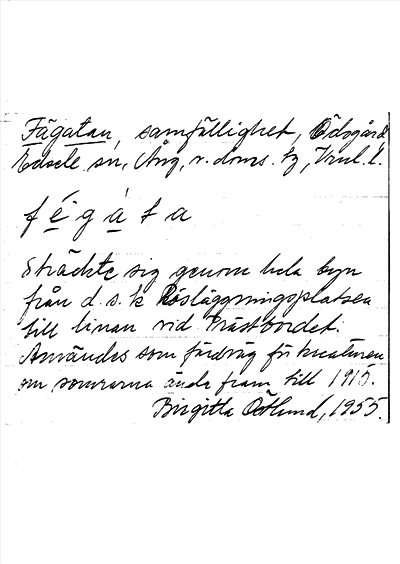 Fägatan, samfällighet, Ödsgård
Edsele sn, Ång, v. doms. tg, Vnl. l.
f é g à t a
Sträckte sig genom hela byn
från d. s. k. Rösläggningsplatsen
till linan vid Prästbordet.
Användes som fädräg för kreaturen
om somrarna ända fram till 1915.
Birgitta Östlund, 1955.